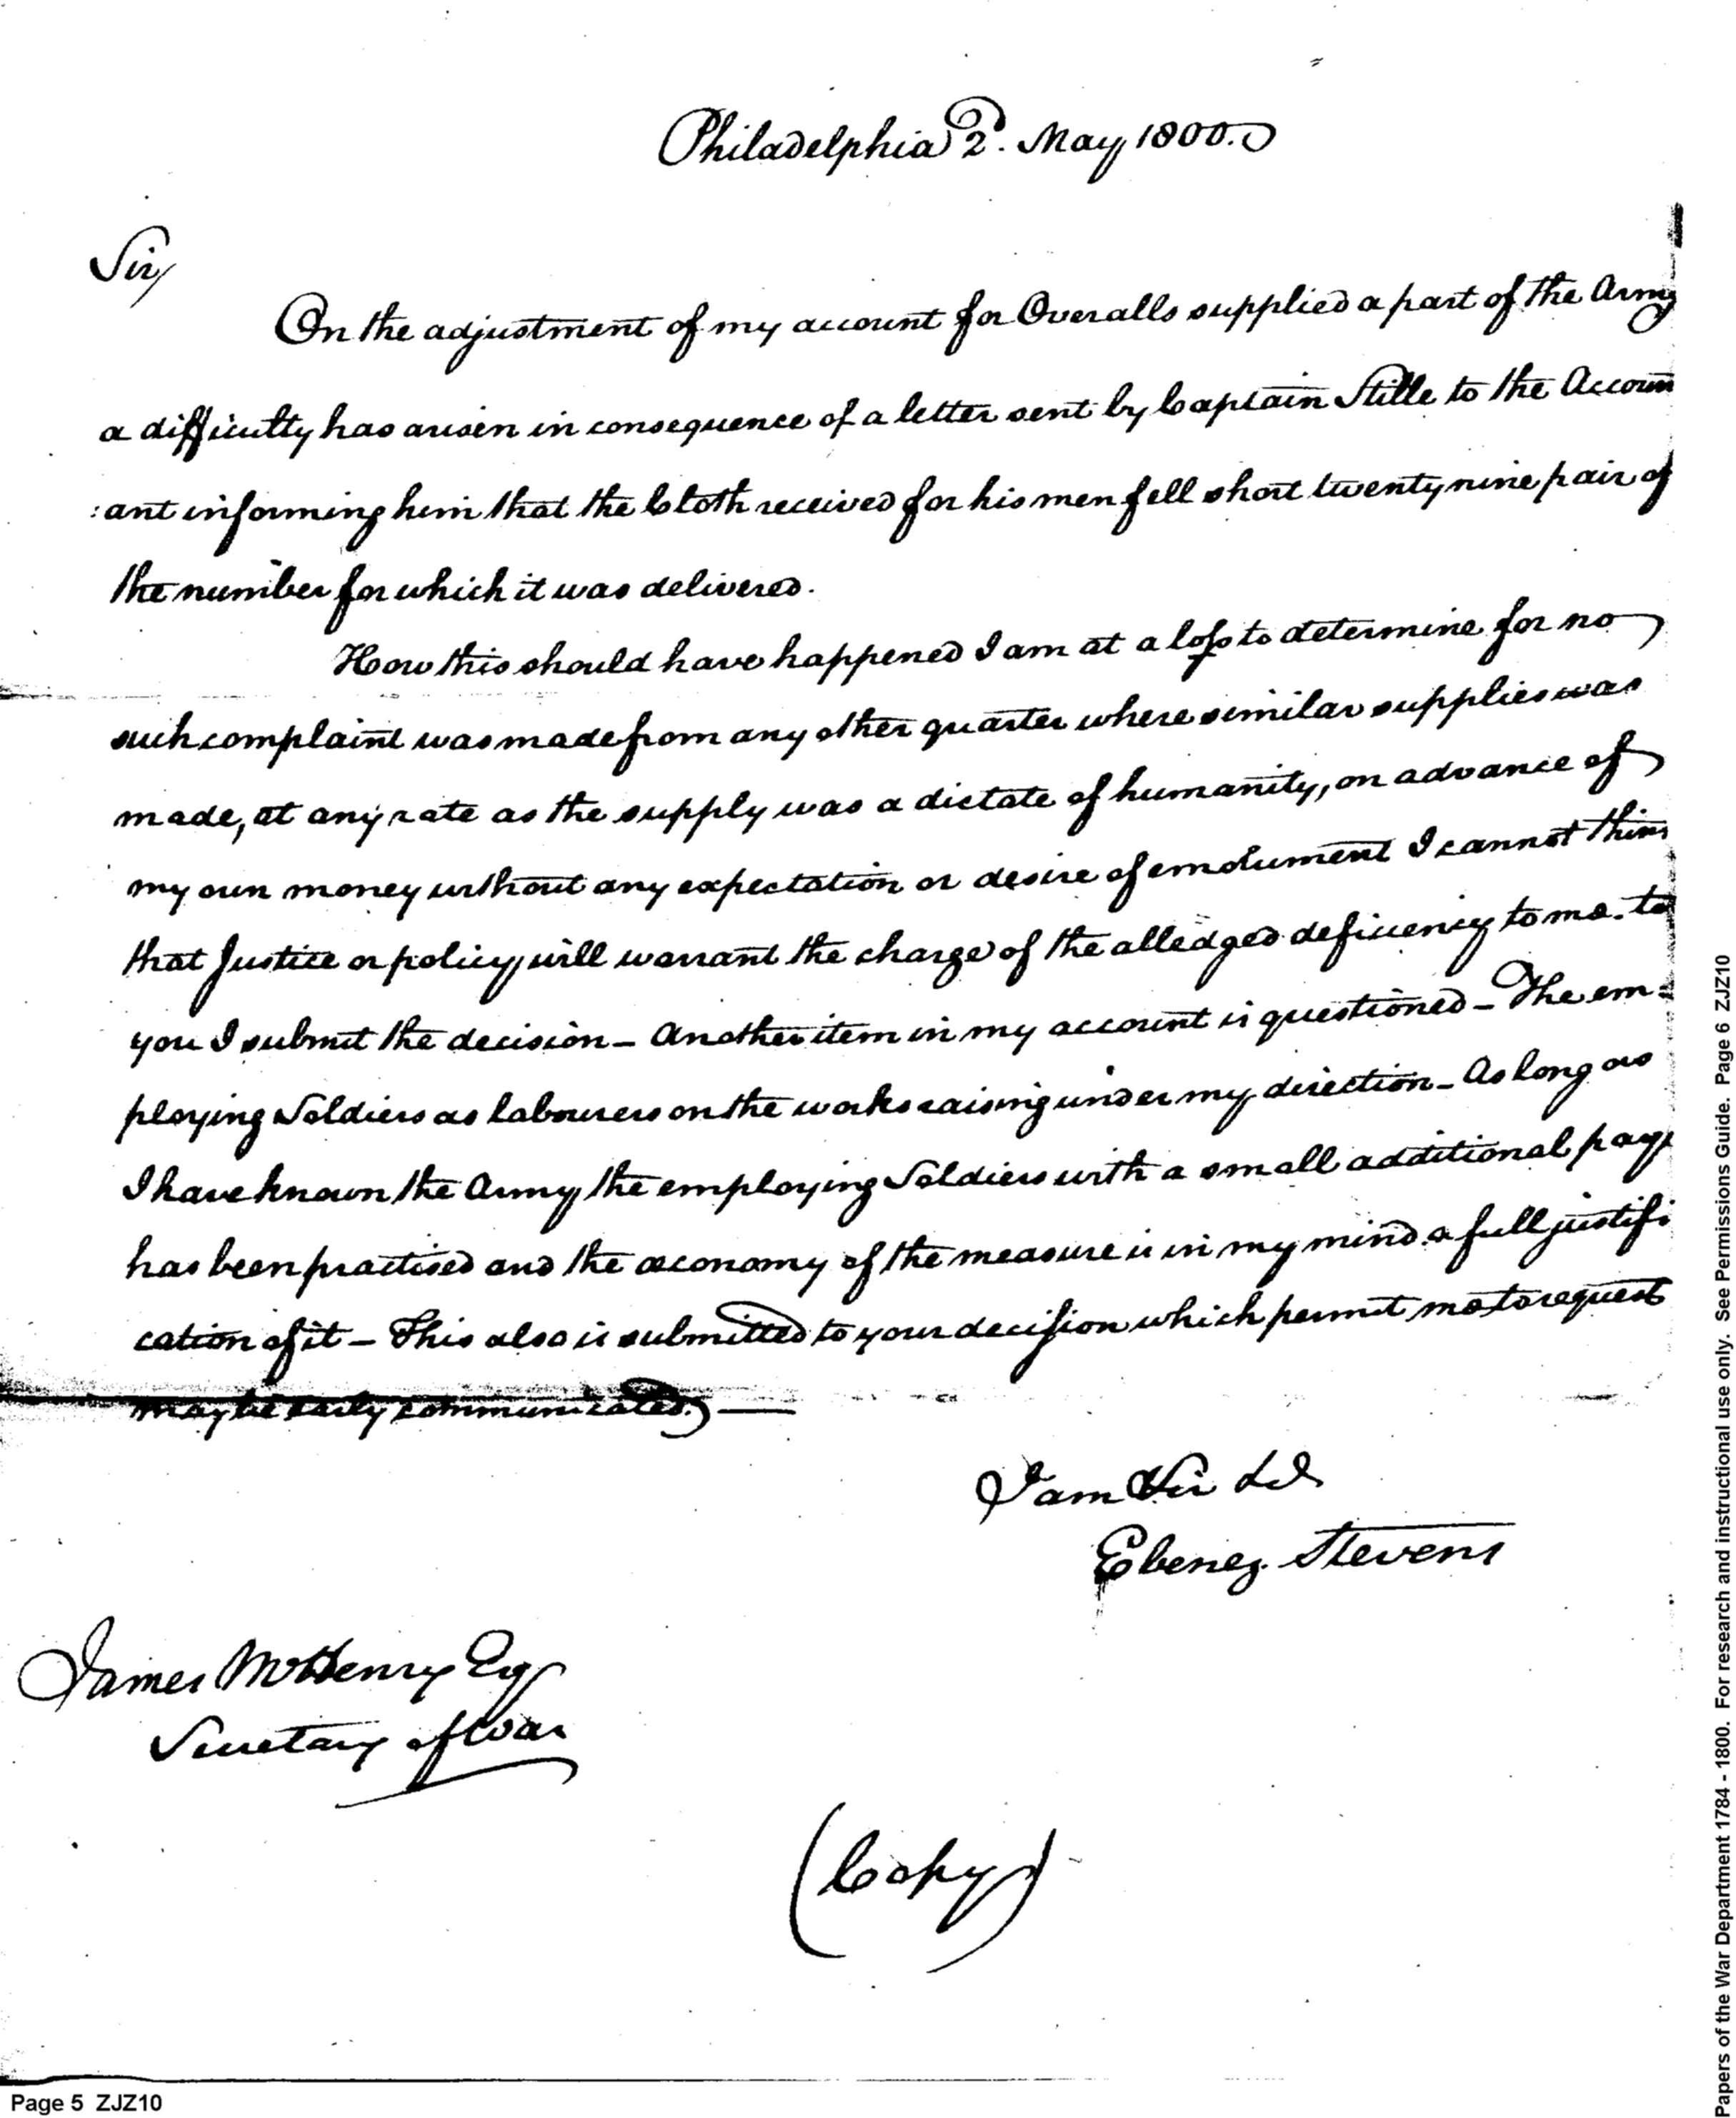 Philadelphia 2d. May 1800.
Sir,
On the adjustment of my account for Overalls supplied a part of the Army
a difficulty has arisen in consequence of a letter sent by Captain Stille to the Accoun
:ant informing him that the Cloth received for his men fell short twenty nine pair of
the number for which it was delivered.
How this should have happened I am at a loss to determine for no
such complaint was made from any other quarter where similar supplies was
made, at any rate as the supply was a dictate of humanity, on advance of
my own money without any expectation or desire of emolument I cannot think
that Justice or policy will warrant the charge of the alledged deficiency to me. to
you I submit the decision – Another item in my account is questioned – The em=
ploying Soldiers as labourers on the works raising under my direction – As long as
I have known the Army the employing Soldiers with a small additional pay
has been practised and the œconomy of the measure is in my mind a full justifi
cation of it – This also is submitted to your decision which permit me to request
may be early communicated. —
I am Sir &c
Ebenez. Stevens
James McHenry Esq
Secretary of War
(Copy)
Page 5 ZJZ10
Papers of the War Department 1784 - 1800. For research and instructional use only. See Permissions Guide. Page 6 ZJZ10